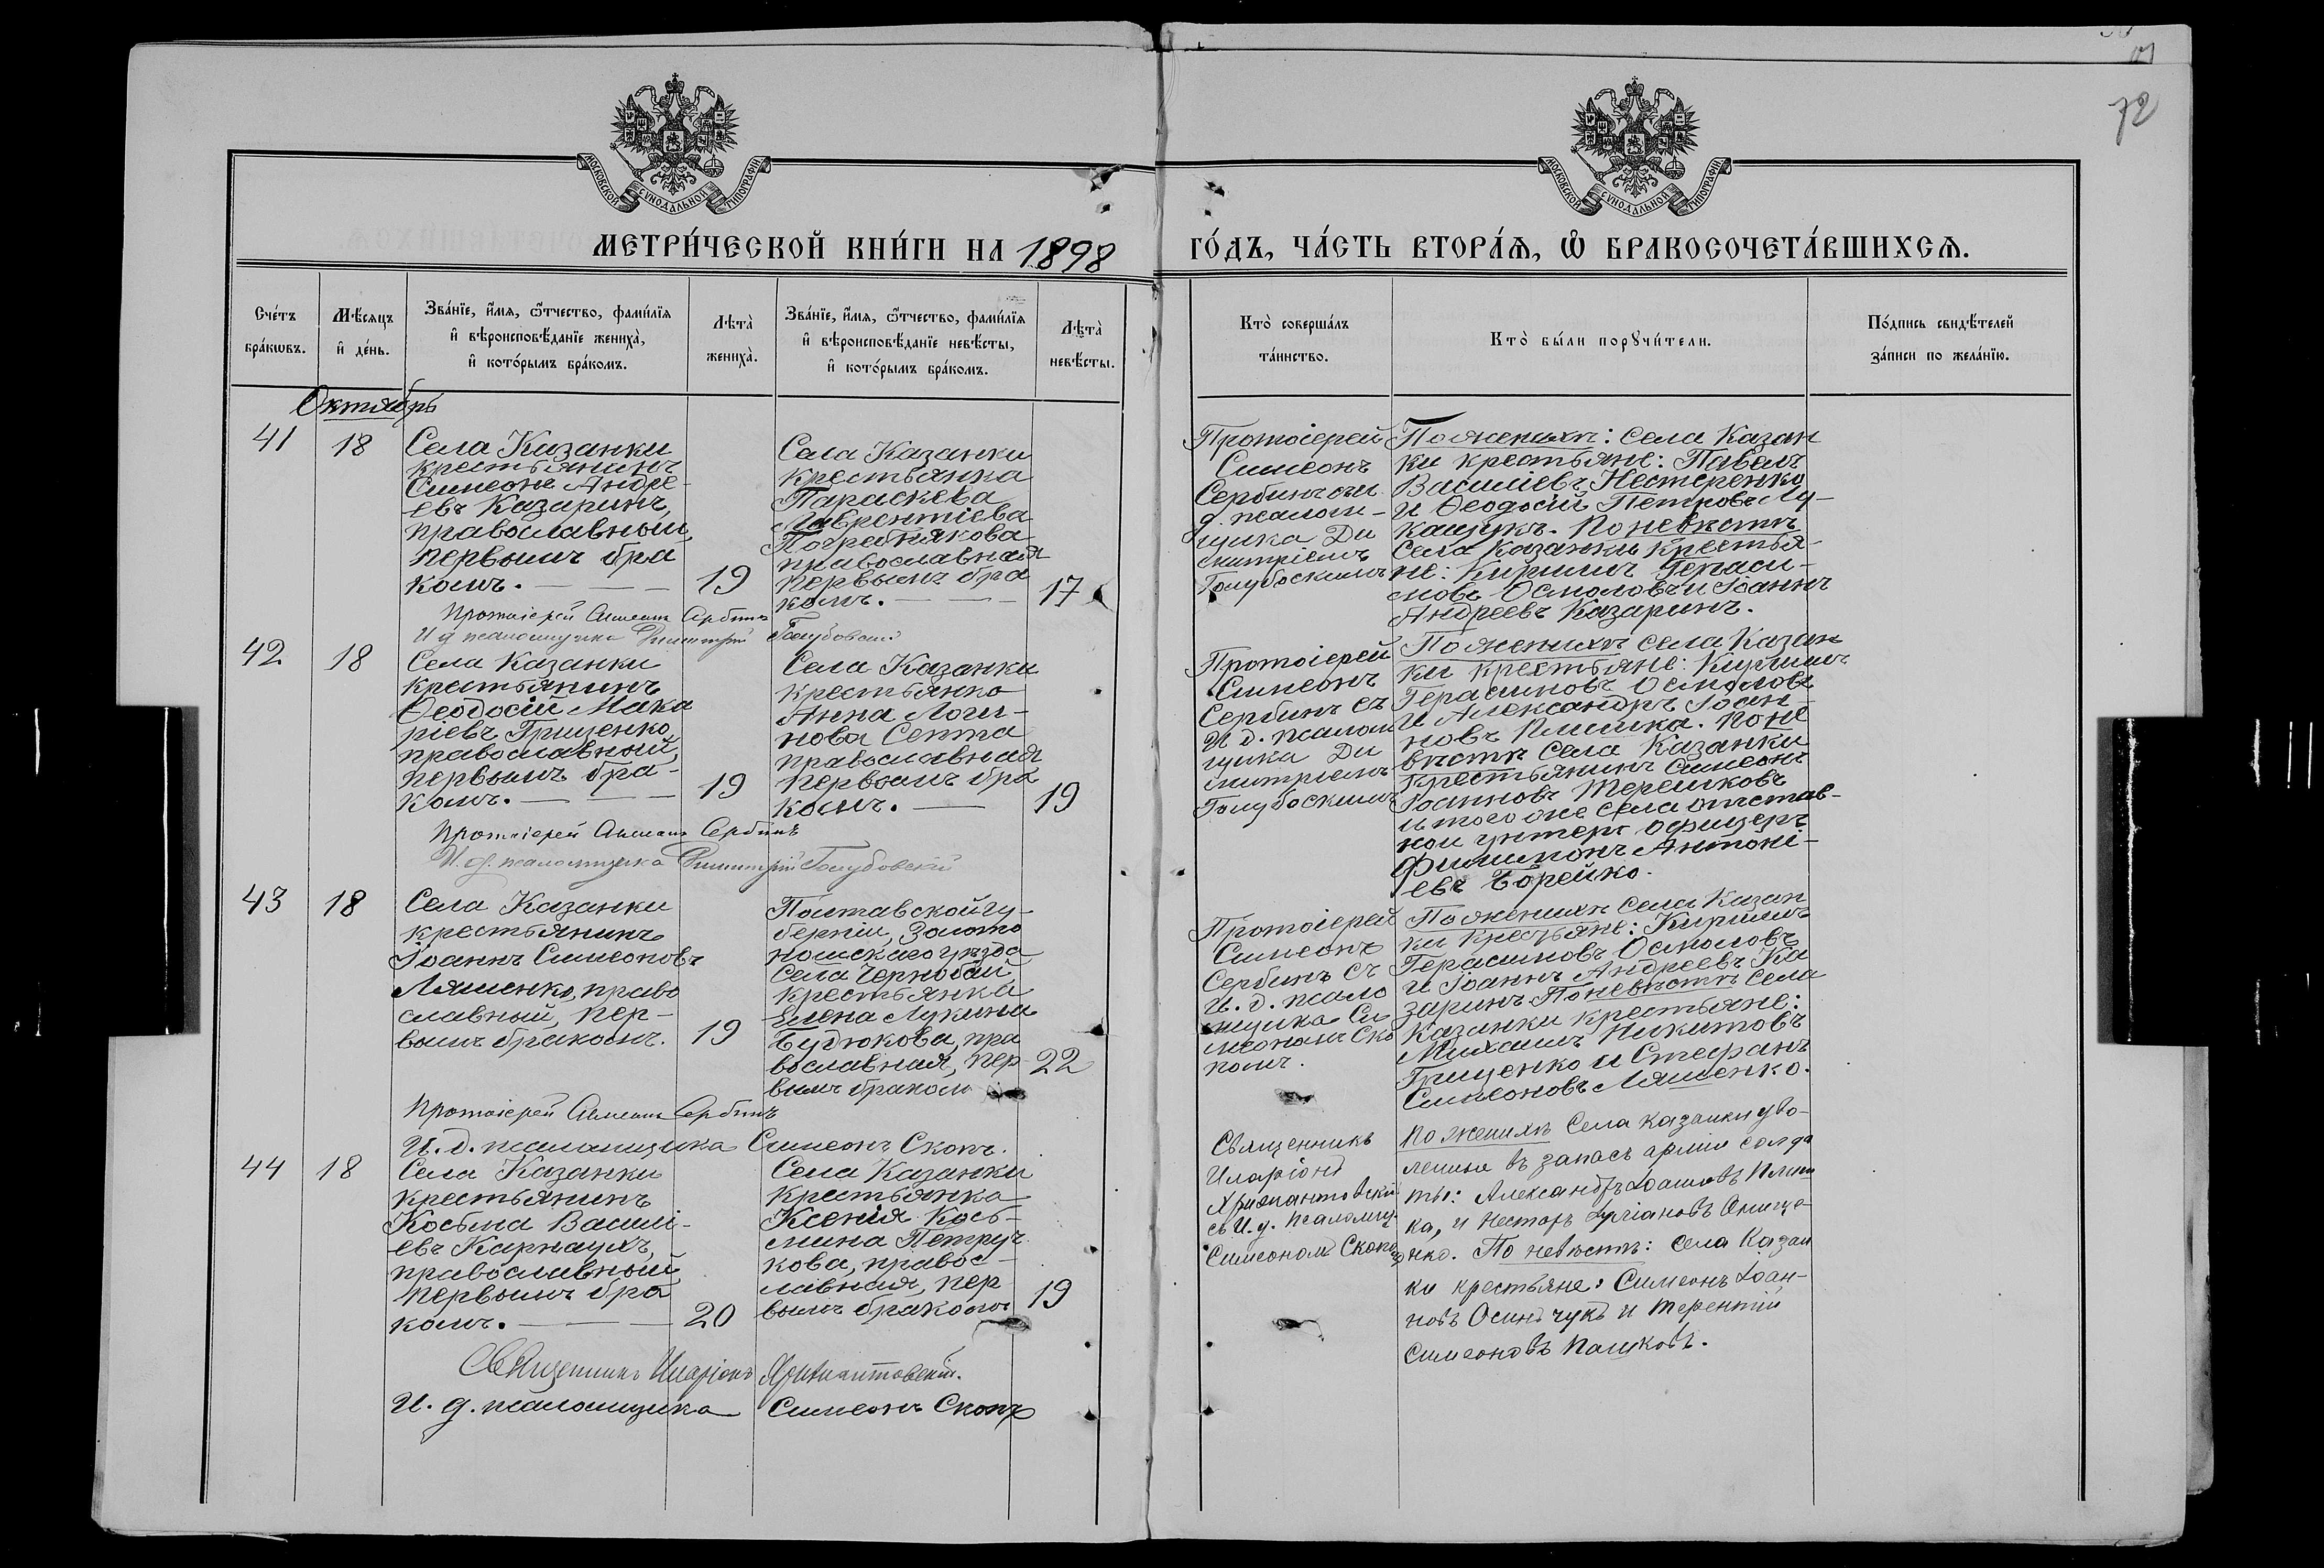 72
МОСКОВСКОЙ СѴНОДАЛЬНОЙ ТИПОГРАФІИ
МОСКОВСКОЙ СѴНОДАЛЬНОЙ ТИПОГРАФІИ
МЕТРИ́ЧЕСКОЙ КНИ́ГИ НА 1898
ГО́ДЪ, ЧА́СТЬ ВТОРА́Ѧ, Ѽ БРАКОСОЧЕТА́ВШИХСѦ.
Сче́тъ
бра́кѡвъ.
Мѣ́сяцъ
и҆ де́нь.
Зва́нїе, и҆́мѧ, ѻ҆́тчество, фами́лїѧ
и҆ вѣроисповѣ́данїе женихà,
и҆ кото́рымъ бра́комъ.
Лѣтà
женихà.
Зва́нїе, и҆́мѧ, ѻ҆́тчество, фами́лїѧ
и҆ вѣроисповѣ́данїе невѣ́сты,
и҆ кото́рымъ бра́комъ.
Лѣтà
невѣ́сты.
Ктò соверша́лъ
та́инство.
Ктò бы́ли порꙋчи́тели.
По́дпись свидѣ́телей
за́писи по жела́нїю.
Октябрь
41
18
Села Казанки
крестьянинъ
Симеонъ Андре-
евъ Казаринъ,
православный,
первымъ бра
комъ.
19
Села Казанки
крестьянка
Параскева
Лаврентіева
Погребнякова
православная
первымъ бра
комъ.
17
Протоіерей
Симеонъ
Сербинъ съ и.
д. псалом-
щика Ди
митріемъ
Голубовскимъ
По женихѣ: села Казан
ки крестьяне: Павелъ
Василіевъ Нестеренко
и Ѳеодосій Петровъ Лу-
кащукъ. По невѣстѣ
села Казанки крестья-
не: Кириллъ Гераси-
мовъ Осмоловъ и Іоаннъ
Андреевъ Казаринъ.
Протоіерей Симеонъ Сербинъ
И д псаломщика Димитрій Голубовскій
42
18
Села Казанки
крестьянинъ
Ѳеодосій Мака
ріевъ Грищенко,
православный,
первымъ бра-
комъ.
19
Села Казанки
крестьянка
Анна Логи-
нова Септа
православная
первымъ бра
комъ.
19
Протоіерей
Симеонъ
Сербинъ съ
И д. псалом
щика Ди
митріемъ
Голубовскимъ
По женихѣ села Казан
ки крестьяне: Кириллъ
Герасимовъ Осмоловъ
и Александръ Іоан-
новъ Плишка. По не
вѣстѣ села Казанки
крестьянинъ Симеонъ
Іоанновъ Терешковъ
и того же села отстав-
ной унтеръ офицеръ
Филимонъ Антоні-
евъ Борейко.
Протоіерей Симеонъ Сербинъ
И. д. псаломщика Димитрій Голубовскій
43
18
Села Казанки
крестьянинъ
Іоаннъ Симеоновъ
Ляшенко, право
славный, пер-
вымъ бракомъ.
19
Полтавской гу-
берніи, Золото
ношскаго уѣзда
села Чернобай
крестьянка
Елена Лукина
Будюкова, пра
вославная, пер-
вымъ браком
22
Протоіерей
Симеонъ
Сербинъ съ
И. д. псало
мщика Си
меономъ Ско
помъ.
По женихѣ села Казан
ки крестьяне: Кириллъ
Герасимовъ Осмоловъ
и Іоаннъ Андреевъ Ка
заринъ. По невѣстѣ села
Казанки крестьяне:
Михаилъ Никитовъ
Грищенко и Стефанъ
Симеоновъ Ляшенко.
Протоіерей Симеонъ Сербинъ
И. д. псаломщика Симеонъ Скопъ.
44
18
Села Казанки
крестьянинъ
Косьма Василі-
евъ Карнаухъ,
православный
первымъ бра
комъ.
20
Села Казанки
крестьянка
Ксенія Кось-
мина Петруч
кова, правос-
лавная, пер
вымъ бракомъ
19
Священникъ
Иларіонъ
Хрисантовскій
съ И. д. псаломщ.
Симеоном Скопом
По женихѣ села Казанки уво-
ленные въ запасъ арміи солда
ты: Александръ Іоанновъ Плиш
ка, и Несторъ Онище-
нко. По невѣстѣ: села Казан
ки крестьяне: Симеонъ Іоан-
новъ Осинчукъ и Терентій
Симеоновъ Пашковъ.
Священникъ Иларіонъ Хрисантовскій.
И. д. псаломщика Симеонъ Скопъ